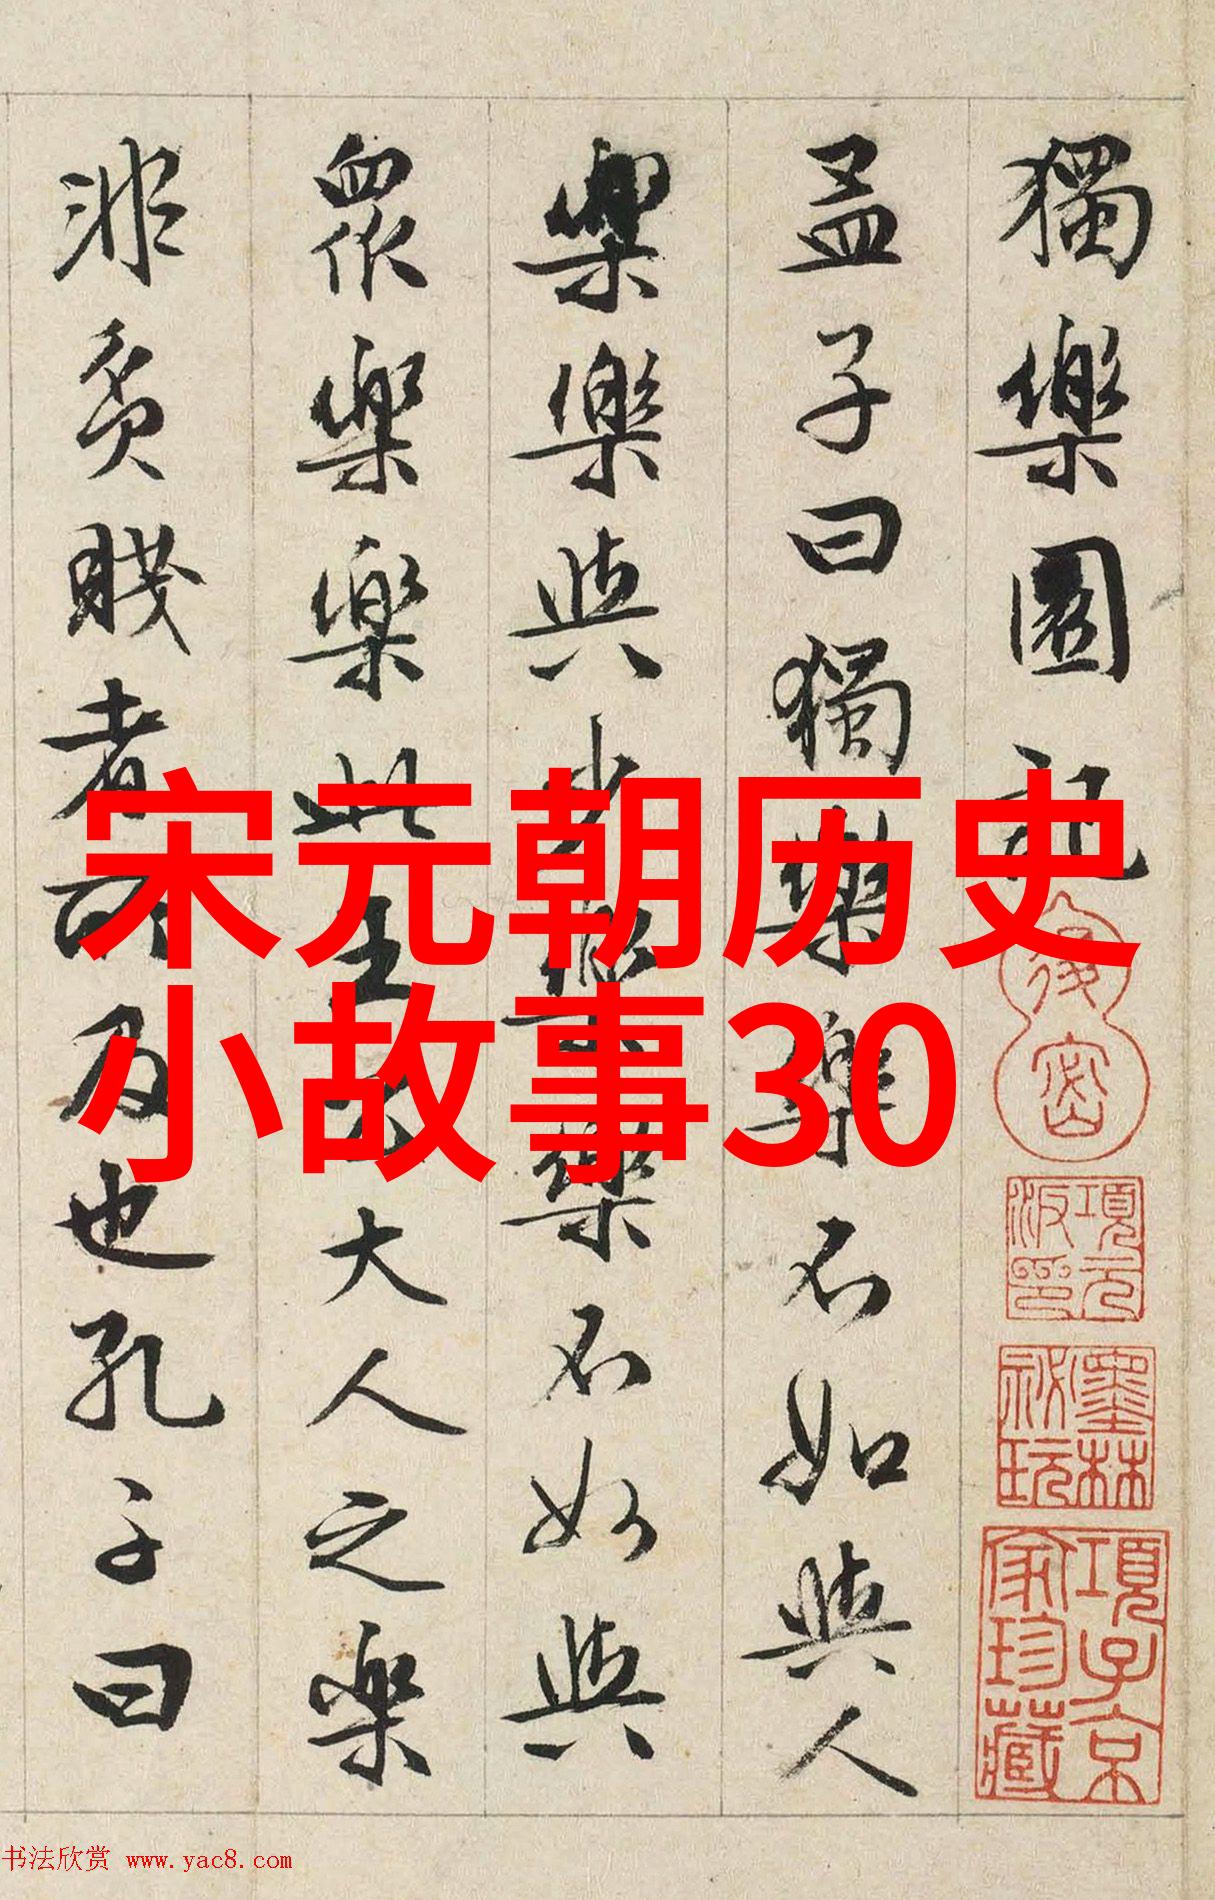 獨樂園記
孟子曰獨樂樂不如與人
樂樂與少樂不如與
眾樂樂此王大人之樂
非貧賤者所及也孔子曰
宋元朝历史
小故事30
項元汴印
墨林祕玩
項子京家珍藏
书法欣赏 www.yac8.com